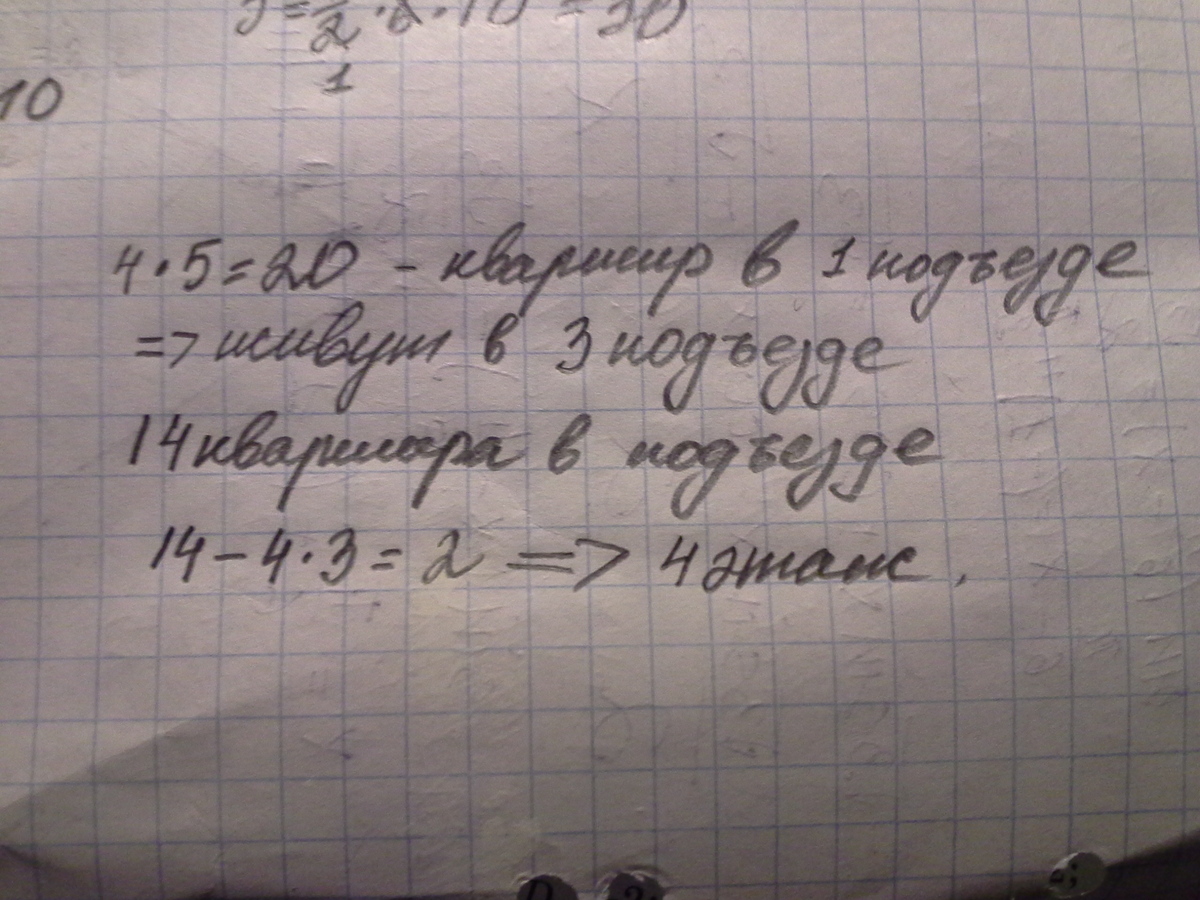 1
10
4·5=20 - квартир в 1 подъезде
=> живут в 3 подъезде
14 квартира в подъезде
14-4·3=2 => 4 этаж.